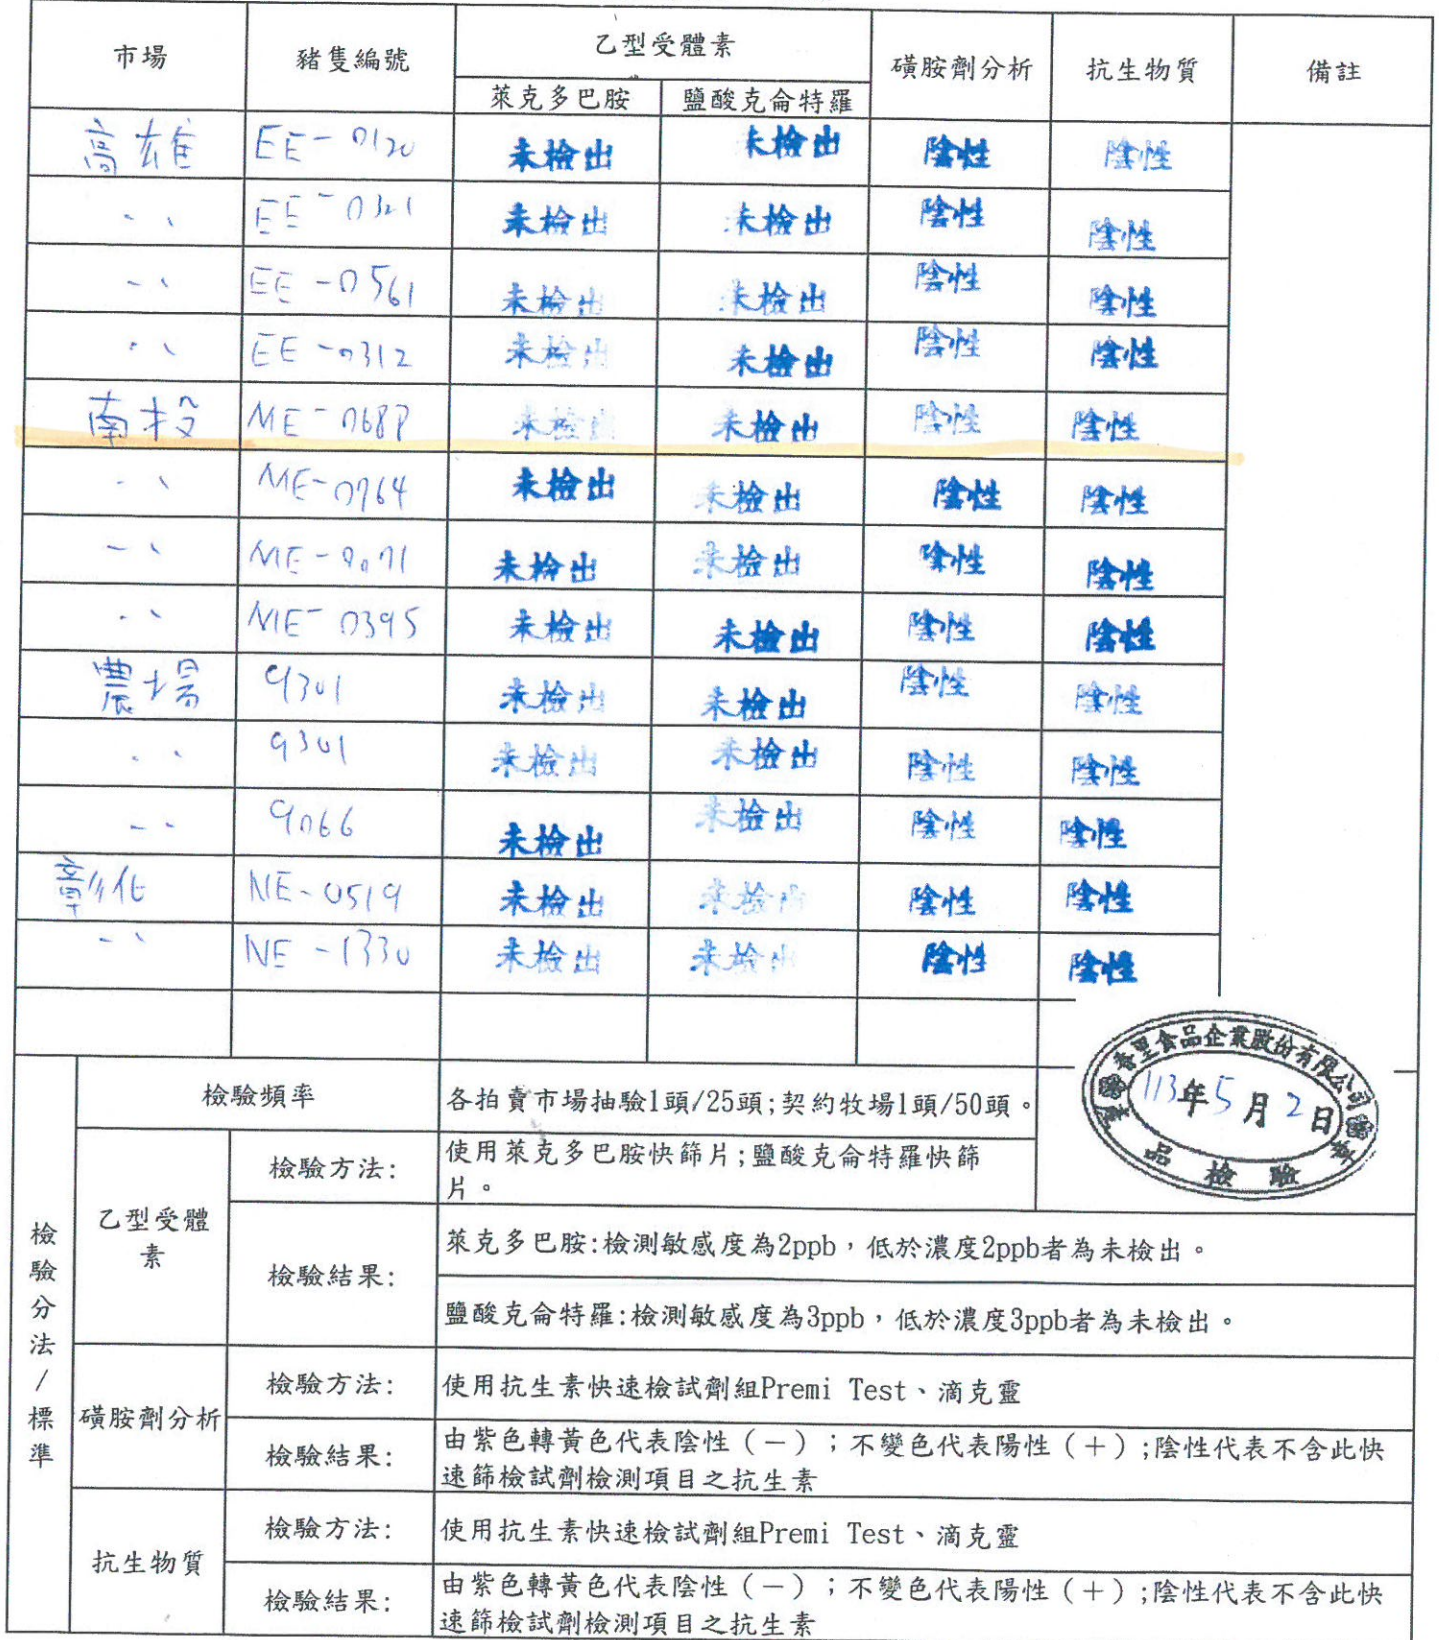 市場 豬隻編號 乙型受體素 磺胺劑分析 抗生物質 備註
萊克多巴胺 鹽酸克侖特羅
高雄 EE-0120 未檢出 未檢出 陰性 陰性
〃 EE-0321 未檢出 未檢出 陰性 陰性
〃 EE-0561 未檢出 未檢出 陰性 陰性
〃 EE-0312 未檢出 未檢出 陰性 陰性
南投 ME- 未檢出 未檢出 陰性 陰性
〃 ME-0764 未檢出 未檢出 陰性 陰性
〃 ME- 未檢出 未檢出 陰性 陰性
〃 ME-0395 未檢出 未檢出 陰性 陰性
農場 9301 未檢出 未檢出 陰性 陰性
〃 9301 未檢出 未檢出 陰性 陰性
〃 9066 未檢出 未檢出 陰性 陰性
彰化 NE-0519 未檢出 未檢出 陰性 陰性
〃 NE-1330 未檢出 未檢出 陰性 陰性
香里食品企業股份有限公司
113年5月2日
品檢驗
檢驗分法/標準
檢驗頻率 各拍賣市場抽驗1頭/25頭;契約牧場1頭/50頭。
乙型受體素
檢驗方法: 使用萊克多巴胺快篩片;鹽酸克侖特羅快篩
片。
檢驗結果: 萊克多巴胺:檢測敏感度為2ppb，低於濃度2ppb者為未檢出。
鹽酸克侖特羅:檢測敏感度為3ppb，低於濃度3ppb者為未檢出。
磺胺劑分析
檢驗方法: 使用抗生素快速檢試劑組Premi Test、滴克靈
檢驗結果: 由紫色轉黃色代表陰性（－）；不變色代表陽性（＋）;陰性代表不含此快
速篩檢試劑檢測項目之抗生素
抗生物質
檢驗方法: 使用抗生素快速檢試劑組Premi Test、滴克靈
檢驗結果: 由紫色轉黃色代表陰性（－）；不變色代表陽性（＋）;陰性代表不含此快
速篩檢試劑檢測項目之抗生素